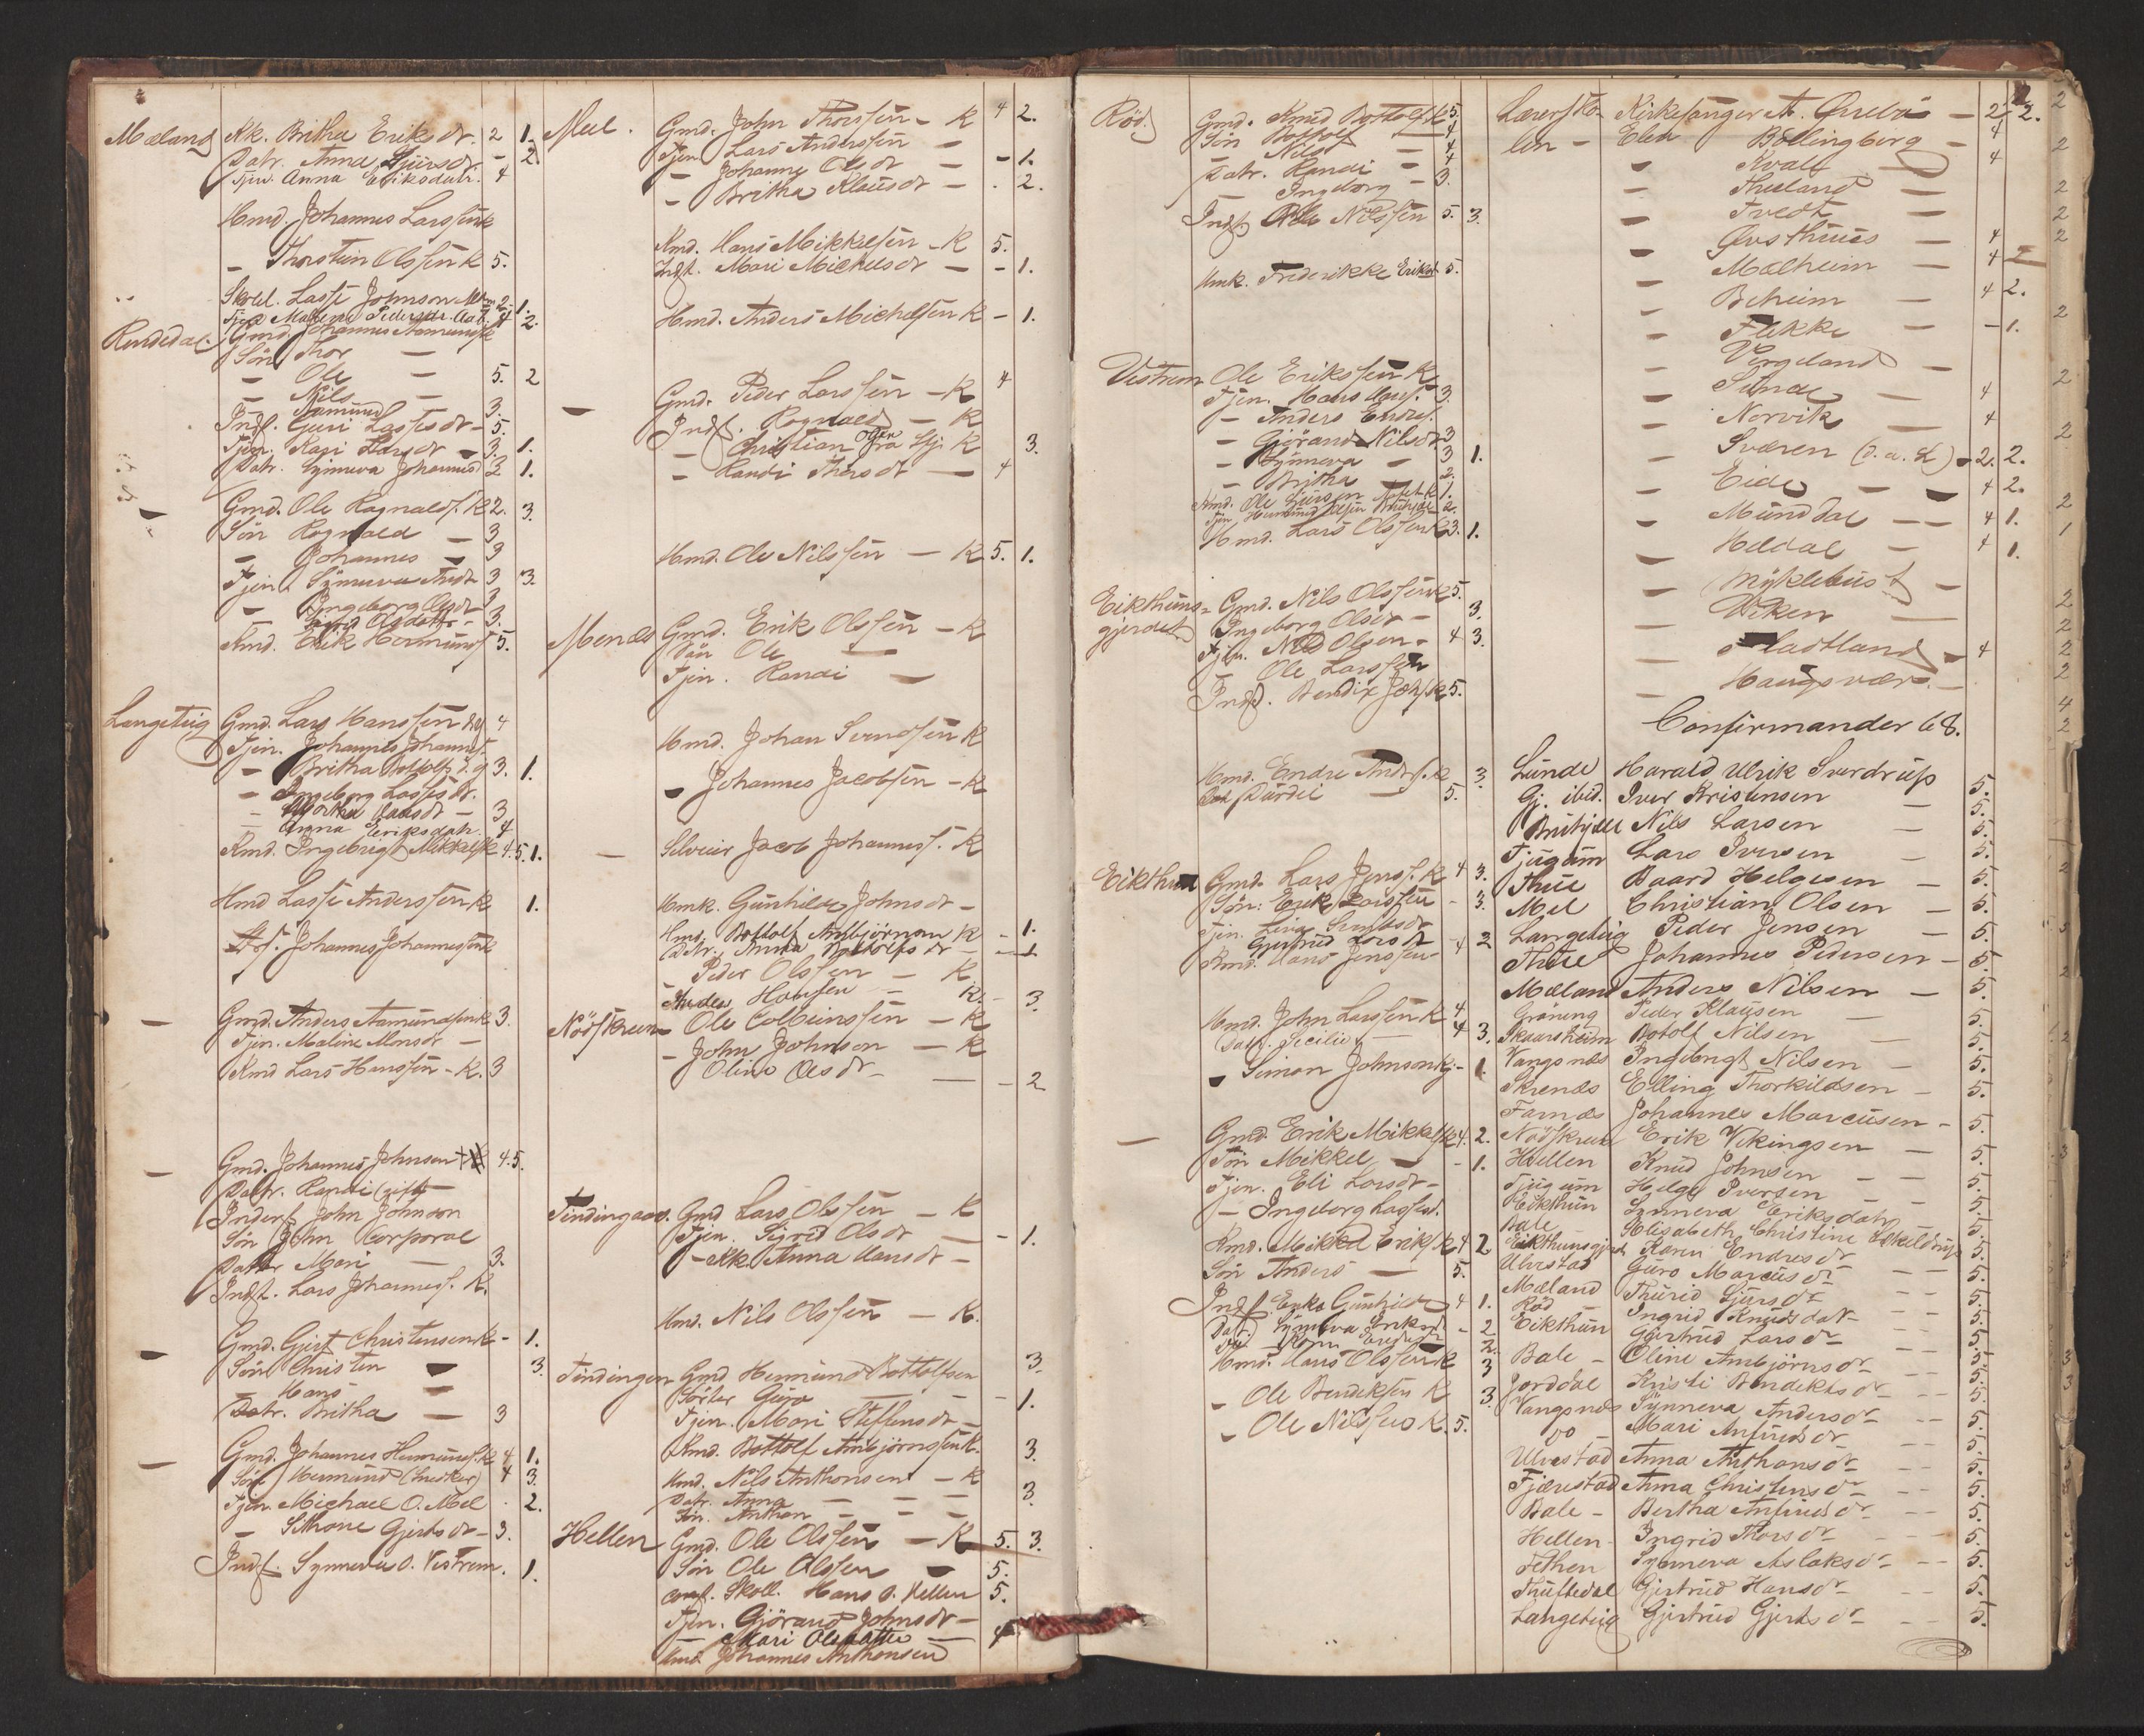 Mæland Kk. Britha Eriksdr. 2 1.
Datr. Anna Sjursdr. - 2.
Tjen. Anna Eriksdatr. 4
Hmd. Johannes Larssen K
- Thorstein Olssen K 5.
Skoll. Lasse Johnson 2 1.
Rendedal Gmd. Johannes Aamundss. K
Søn Thor -
- Ole - 5. 2
- Nils -
- Aamund 3.
Indf. Guri Lassesdr - 5.
Tjen. Kari Larsdr - 3. 1.
Datr. Synneva Johannesd 2 1.
- Gmd. Ole Ragnalds. K 2. 3.
Søn Rognald - 3
- Johannes - 3
Tjen. Synneva Andr 3 3.
- Ingeborg Olsdr 3
- Olsdatr - 3.
Kmd. Erik Hermunds 5.
Langeteig Gmd. Lars Hanssen 4
Tjen. Johannes Johannes.
- Britha Botolfsd. 3. 1.
- Ingeborg Lassesdr.
- Martha Larsdr - 3
- Anna Eriksdatr. 4
Kmd. Ingebrigt Mikkels. K 4.5 1.
Hmd Lasse Anderssen K 1.
Johannes Johannessen K
- Gmd. Anders Aamundssen K 3.
Tjen. Maline Monsdr -
Kmd Lars Hanssen - K. 3
- Gmd. Johannes Johnsen 4.5.
Datr. Randi (gift)
Inderf John Johnson
Søn John Corporal
Datter Mari - 3.
Indf. Lars Johanness. K.
- Gmd. Gjert Christensen K - 1.
Søn Christen - 3.
- Hans -
Datr. Britha - 3
- Gmd. Johannes Hermunds. K 4 1.
Søn Hermund (Snedker) 4 3.
Tjen. Michael O. Mel - 2.
- Sithone Gjertsdr - 3.
Indf. Synneva O. Vestrem. 1.
Mel. Gmd. John Thorssen - K 4 2.
Tjen. Lars Anderssen -
- Johanne Olsdr - - 1.
- Britha Klausdr - . 2.
Kmd. Hans Mikkelsen - K 5.
Indf. Mari Michelsdr - - 1.
Hmd. Anders Michelsen K - 1.
- Gmd. Peder Larssen - K 4
Indf. Rognald - K
- Christian Olsen fra K 3.
- Randi Thorsdr - 4
Hmd. Ole Nilssen - K 5. 1.
Menes Gmd. Erik Olssen - K
Søn Ole -
Tjen. Randi -
Hmd. Johan Svendsen K
- Johannes Jacobsen - K
- Selveier Jacob Johanness. K
Hmk. Gunhilda Johnsdr -
Hmd. Bottolf Ambjørnsen K - 1.
Datr. Anna Bottolfsdr - 1
Peder Olssen - K
Anders Hansen - K. - 3.
Nødskreen Ole Colbeinssen - K
- John Johnson - K
Oline Olsdr - - 2
Tindingaas. Gmd Lars Olssen - K
Tjen. Sigrid Olsdr - - 1.
- Kk Anna Hansdr -
Hmd. Nils Olssen - K.
Tindingen Gmd Hermund Bottolfsen 3.
Søster Guro - - 1.
Tjen. Mari Steffensdr -
Kmd. Bottolf Ambjørnssen K. 3.
Hmd. Nils Anthonsen - K
Datr. Anna - - - 3.
Søn. Anthon - - -
Hellen Gmd. Ole Olssen - K 5. 3.
Søn Ole Olssen - 5.
conf. Skoll. Hans O. Hellen 5.
Tjen. Gjørand Johnsdr -
- Mari Olsdatter - 4
Hmd Johannes Anthonsen
Rød. Gmd. Knud Bottolfs. K 5.
Søn Bottolf - 4
- Nils - 4
Datr. Randi - 4
- Ingeborg - 3.
Indf. Ole Nilssen 5. 3.
Hmk. Frederikke Eriksd 5.
Vestrem Ole Erikssen K
Tjen. Hans Hans. 3.
- Anders Endres.
- Gjørand Nilsdr 3
- Synneva - 3 1.
- Britha - 2.
Hmd. Lars Olssen K 3. 1.
Eikthuns- Gmd. Nils Olssen K 5.
gjerdet Ingeborg Olsdr - 3.
Tjen. Nils Olsen - 4 3.
- Ole Larssen
Indf. Bendix Joh. K 5.
Hmd. Endre Anders. K 3.
Durdei - 5.
Eikthun Gmd. Lars Jens. K 4 3.
Søn: Erik Larssen - 3.
Gjertrud Larsdr - 4 2
Kmd. Hans Jenssen
Hmd. John Larssen K 4
Datr. Cecilie - 4 3.
- Simon Johnson K - 1.
- Gmd. Erik Mikkels. K 4. 2.
Søn Mikkel - - 1.
Tjen. Eli Larsdr -
- Ingeborg Lassesd.
Kmd. Mikkel Eriks. K 4 2
Søn Anders - 5.
Indf. Enke Gunhild 4 1.
Datr. Synneva Eriksd - 2
Hmd. Hans Olssen K 3
- Ole Bendiksen K 3.
- Ole Nilssen K. 5.
Lærersko- Kirkesanger A. Ørebø - 2. 2.
len - Elev Bøllingberg - 4
- Kvale - 4
- Thueland -
- Tvedt -
- Øvsthuus - 4
- Mælheim - 4
- Beheim - 4 2.
- Flekke - - 1.
- Vergeland -
- Sunde - 4
- Norvik - 4
- Sværen - 2. 2.
- Eide - 4 2.
- Munddal - 4 1.
- Heldal - 4 1.
- Myklebust -
- Viken -
- Fladtland - 4
- Haugsvær -
Confirmander 68.
Lunde Harald Ulrik Sverdrup 5.
Gj. ibid. Iver Kristensen - 5.
Nils Larsen - 5.
Tjugum Lars Iversen - 5.
Thue Baard Helgesen - 5.
Mel Christian Olsen - 5.
Langeteig Peder Jensen - 5.
Thue Johannes Pedersen - 5.
Mæland Anders Nilsen - 5.
Grøning Peder Klausen - 5.
Skaarsheim Botolf Nilsen - 5.
Vangsnes Ingebrigt Nilsen - 5.
Skrenes Elling Thorkildsen - 5.
Farnes Johannes Marcusen - 5.
Nødskreen Erik Vikingsen - 5.
Hellen Knud Johnsen - 5.
Tjugum Helge Iversen - 5.
Eikthun Synneva Eriksdatr 5.
Bale Elisabeth Christine Eskildrup 5.
Eikthunsgjerd Karen Endresdr - 5.
Ulvestad Guro Marcusdr - 5.
Mæland Thurid Sjursdr - 5.
Rød Ingrid Knudsdatr - 5.
Eikthun Gjertrud Larsdr - 5.
Bale - Oline Ambjørnsdr - 5.
Jorddal Kristi Bendiktsdr - 5.
Vangsnes Synneva Andersdr - 5.
do Mari Anfindsdr - 5.
Ulvestad Anna Anthonsdr - 5.
Fjærestad Anna Christensdr - 5.
Bale - Bertha Anfindsdr - 5.
Hellen - Ingrid Thorsdr - 5.
Fethen Synneva Aslaksdr - 5.
Thuftedal Gjertrud Hansdr - 5.
Langeteig Gjertrud Gjertsdr - 5.